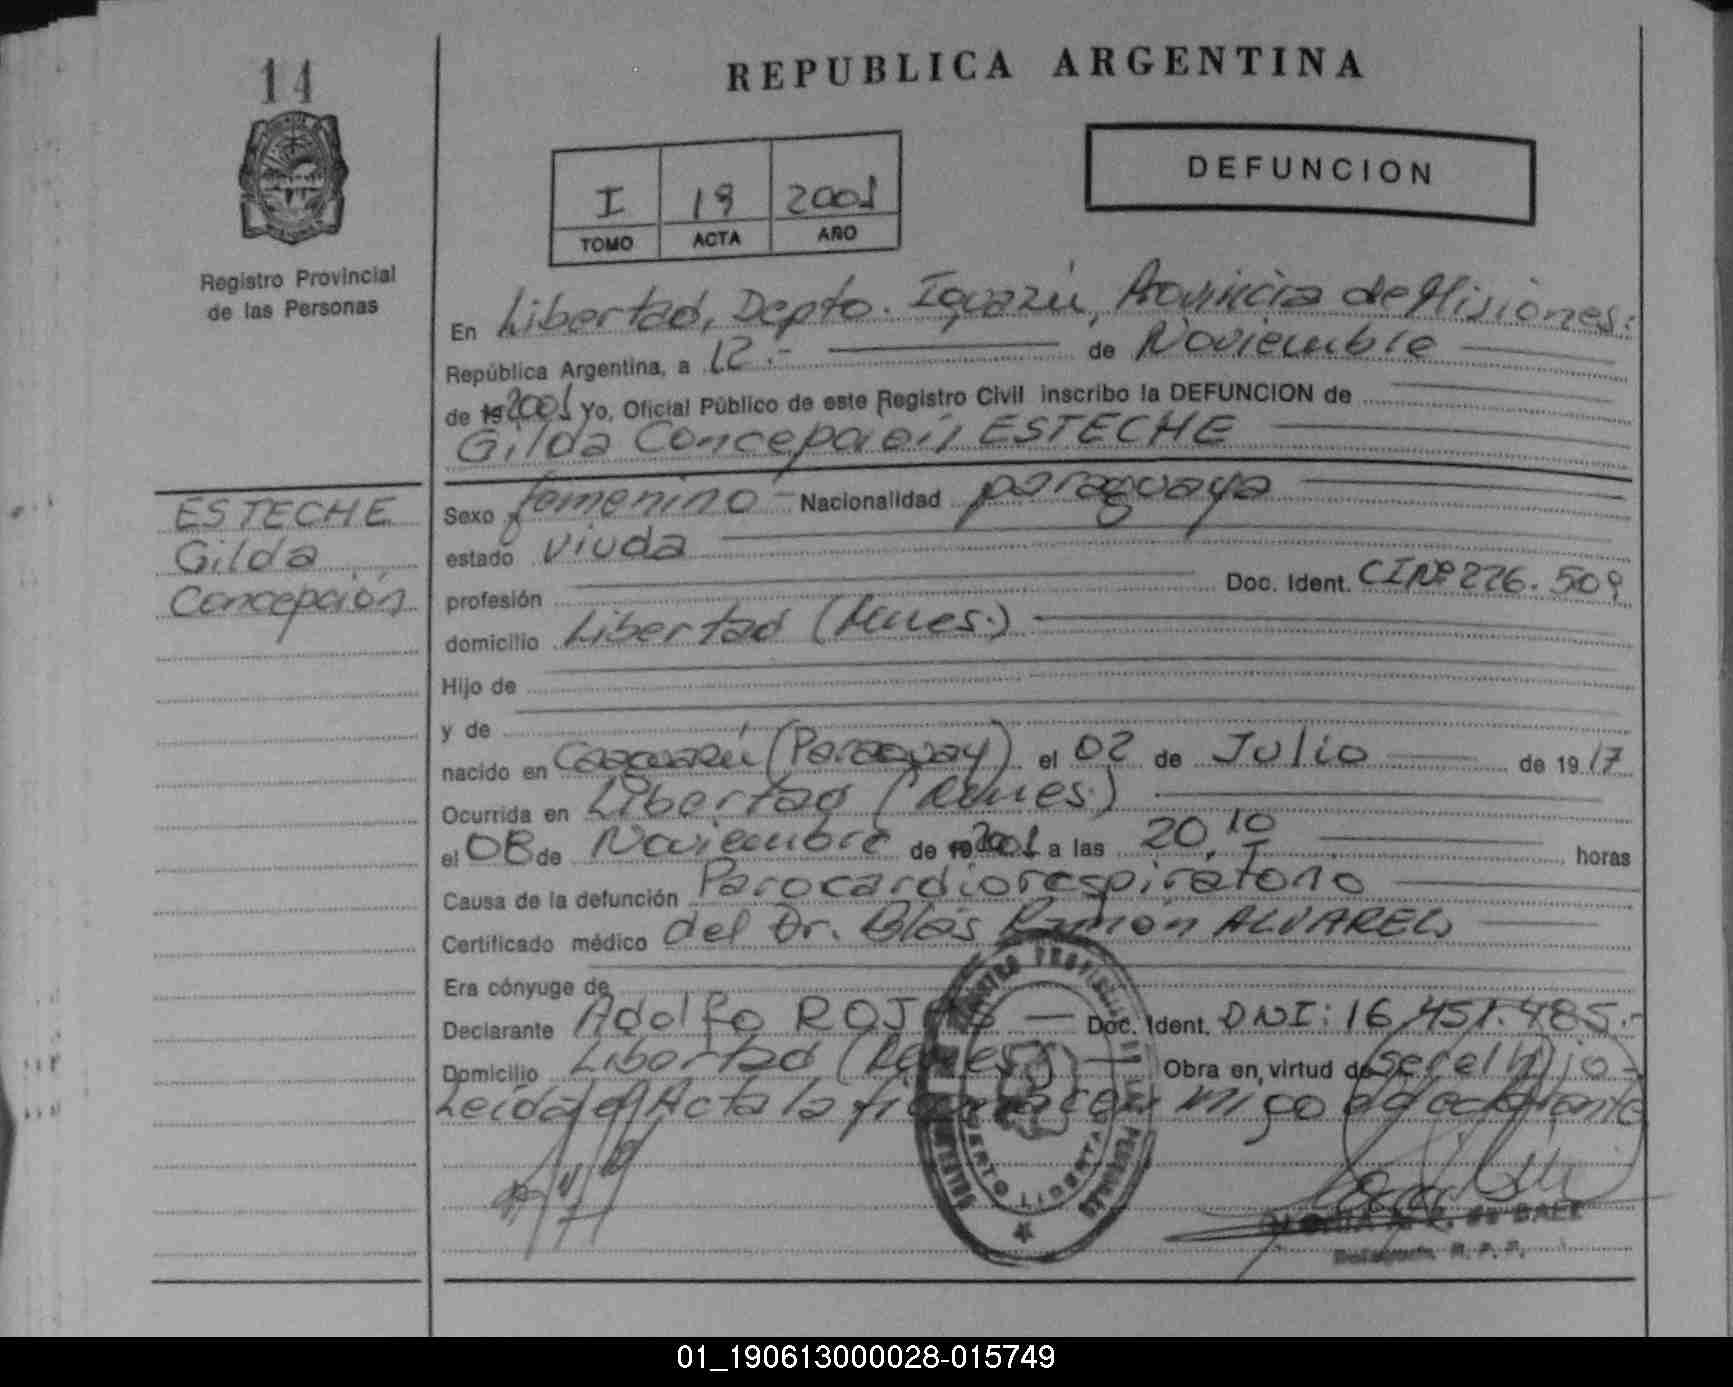 14
REPUBLICA ARGENTINA
DEFUNCION
I 19 2001
TOMO ACTA AÑO
Registro Provincial
de las Personas
En Libertad, Depto. Iguazú, Provincia de Misiones.
República Argentina, a 12.- de Noviembre
de 19 2001 Yo, Oficial Público de este Registro Civil inscribo la DEFUNCION de
Gilda Concepción ESTECHE
ESTECHE
Gilda
Concepción
Sexo femenino - Nacionalidad paraguaya
estado viuda
profesión Doc. Ident. CI Nº 226.509
domicilio Libertad (Mnes.)
Hijo de
y de
nacido en Caaguazú (Paraguay) el 02 de Julio de 19 17
Ocurrida en Libertad (Mnes.)
el 08 de Noviembre de 19 2001 a las 20,10 horas
Causa de la defunción Parocardiorespiratorio
Certificado médico del Dr. Blás Ramón ALVAREZ
Era cónyuge de
Declarante Adolfo ROJAS Doc. Ident. DNI: 16.451.485.-
Domicilio Libertad (Mnes.) Obra en virtud de ser el hijo
Leída el Acta la firma con migo el declarante
REGISTRO PROVINCIAL DE LAS PERSONAS
LIBERTAD
de BAEZ
R. P. P.
01_190613000028-015749